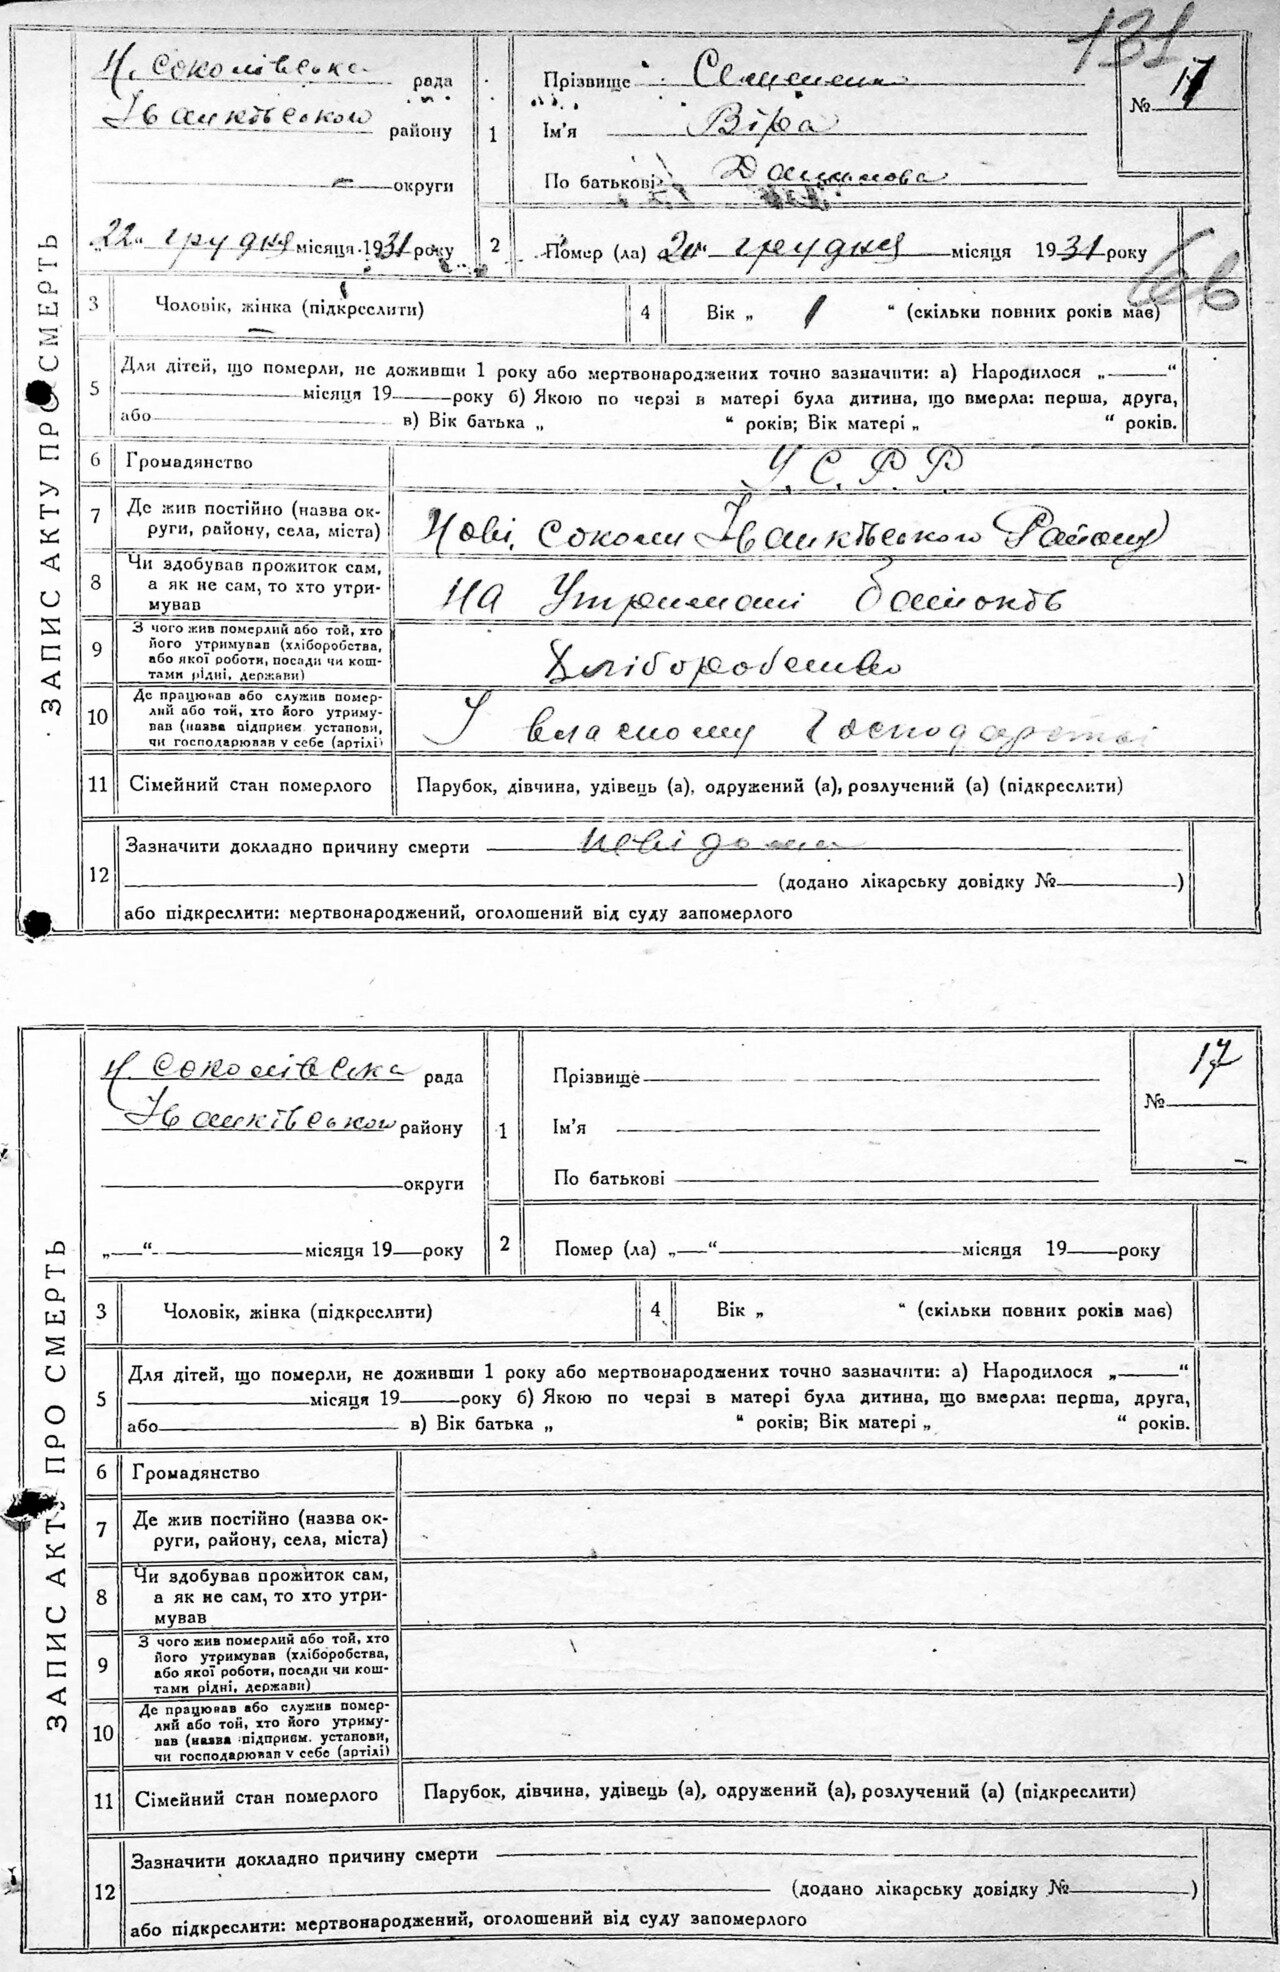 131
ЗАПИС АКТУ ПРО СМЕРТЬ
Н. Соколівська рада
Іванківського району
округи
„22“ грудня місяця 1931 року
1
Прізвище
Ім'я Віра
По батькові
№ 17
2
Помер (ла) грудня місяця 1931 року
3
Чоловік, жінка (підкреслити)
4
Вік „ 1 “ (скільки повних років має)
5
Для дітей, що померли, не доживши 1 року або мертвонароджених точно зазначити: а) Народилося „ “
місяця 19 року б) Якою по черзі в матері була дитина, що вмерла: перша, друга,
або в) Вік батька „ “ років; Вік матері „ “ років.
6
Громадянство У. С. Р. Р.
7
Де жив постійно (назва ок-
руги, району, села, міста)
Нові Соколи Іванківського Району
8
Чи здобував прожиток сам,
а як не сам, то хто утри-
мував
на Утриманні батьків
9
З чого жив померлий або той, хто
його утримував (хліборобства,
або якої роботи, посади чи кош-
тами рідні, держави)
Хліборобство
10
Де працював або служив помер-
лий або той, хто його утриму-
вав (назва підприєм. установи,
чи господарював у себе (артілі)
У власному господарстві
11
Сімейний стан померлого
Парубок, дівчина, удівець (а), одружений (а), розлучений (а) (підкреслити)
12
Зазначити докладно причину смерти невідома
(додано лікарську довідку № )
або підкреслити: мертвонароджений, оголошений від суду запомерлого
ЗАПИС АКТУ ПРО СМЕРТЬ
Н. Соколівська рада
Іванківського району
округи
„ “ місяця 19 року
1
Прізвище
Ім'я
По батькові
№ 17
2
Помер (ла) „ “ місяця 19 року
3
Чоловік, жінка (підкреслити)
4
Вік „ “ (скільки повних років має)
5
Для дітей, що померли, не доживши 1 року або мертвонароджених точно зазначити: а) Народилося „ “
місяця 19 року б) Якою по черзі в матері була дитина, що вмерла: перша, друга,
або в) Вік батька „ “ років; Вік матері „ “ років.
6
Громадянство
7
Де жив постійно (назва ок-
руги, району, села, міста)
8
Чи здобував прожиток сам,
а як не сам, то хто утри-
мував
9
З чого жив померлий або той, хто
його утримував (хліборобства,
або якої роботи, посади чи кош-
тами рідні, держави)
10
Де працював або служив помер-
лий або той, хто його утриму-
вав (назва підприєм. установи,
чи господарював у себе (артілі)
11
Сімейний стан померлого
Парубок, дівчина, удівець (а), одружений (а), розлучений (а) (підкреслити)
12
Зазначити докладно причину смерти
(додано лікарську довідку № )
або підкреслити: мертвонароджений, оголошений від суду запомерлого